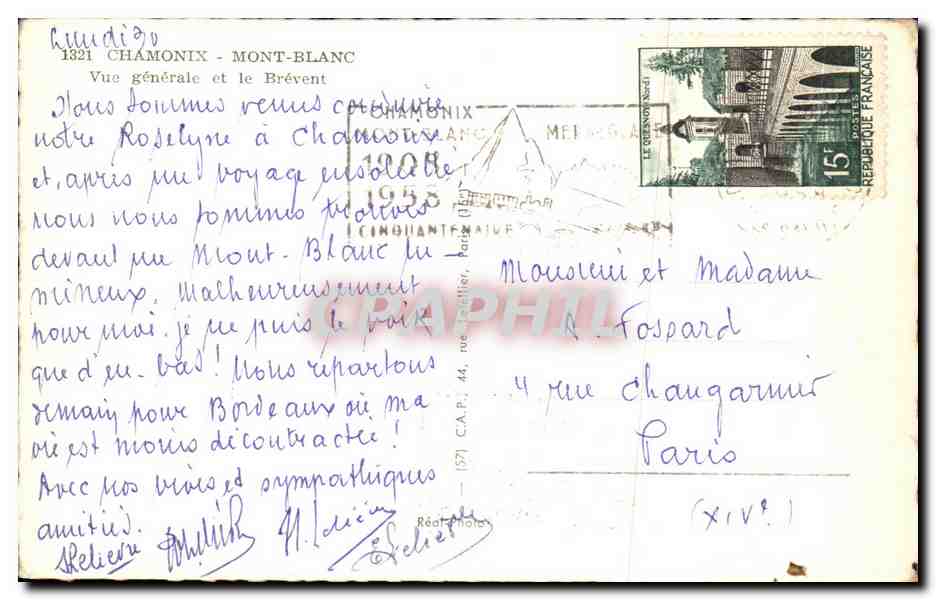 lundi 30
1321 CHAMONIX - MONT-BLANC
Vue générale et le Brévent
Nous sommes venus conduire
notre Roselyne à Chamonix
et, après un voyage ensoleillé
nous nous sommes trouvés
devant un Mont-Blanc lu-
mineux. Malheureusement
pour moi, je ne puis le voir
que d'en-bas! Nous repartons
demain pour Bordeaux où ma
vie est moins décontractée!
Avec nos vives et sympathiques
amitiés.
HLelievre
CHAMONIX
MONT-BLANC MER DE GLACE
1908
1958
CINQUANTENAIRE
LE QUESNOY (Nord)
15F
POSTES
REPUBLIQUE FRANÇAISE
Monsieur et Madame
R. Fossard
4 rue Changarnier
Paris
(XIVe)
(57) C.A.P., 44, rue Letellier, Paris (15e)
Réal-Photo
CPAPHIL